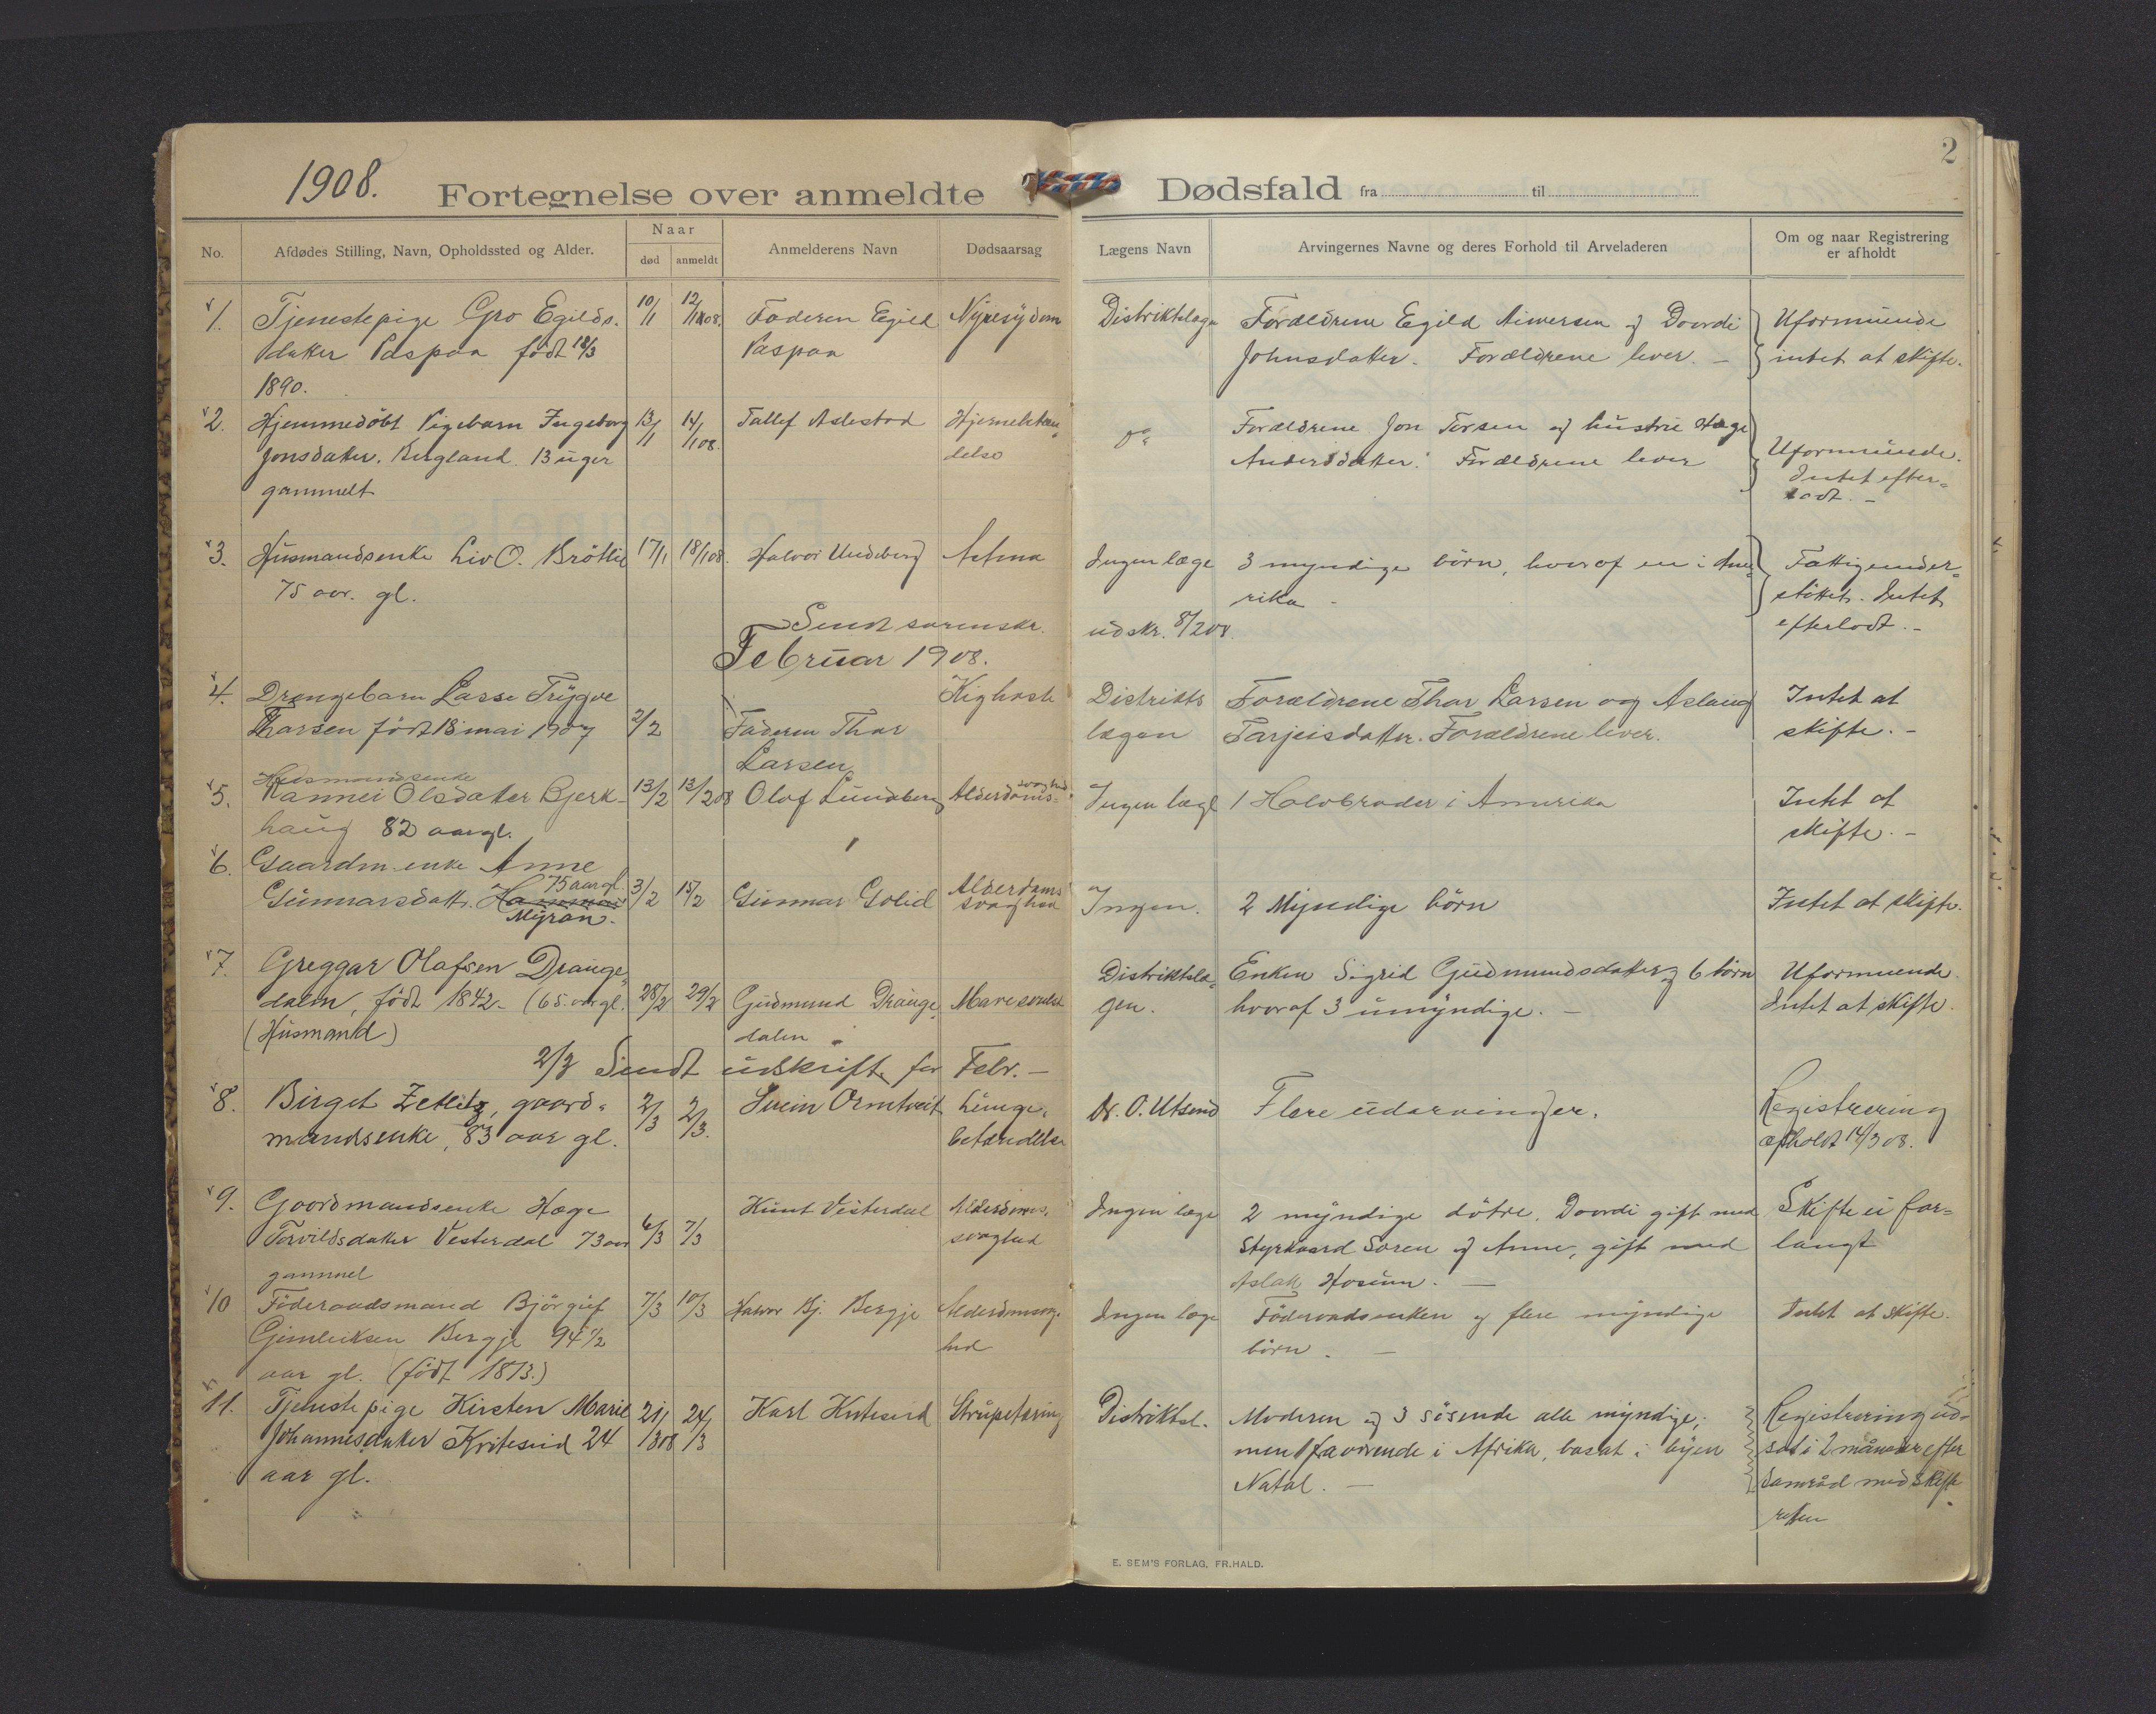 1908.
Fortegnelse over anmeldte
Dødsfald fra til
2
No.
Afdødes Stilling, Navn, Opholdssted og Alder.
Naar
død
anmeldt
Anmelderens Navn
Dødsaarsag
Lægens Navn
Arvingernes Navne og deres Forhold til Arveladeren
Om og naar Registrering
er afholdt
1. Tjenestepige Gro Egilds-
datter Vaspaa født 18/3
1890.
10/1
12/1 08.
Faderen Egild
Vaspaa
Nyresygdom
Distriktslæge
Forældrene Egild Aiversen og Doordi
Johnsdatter. Forældrene lever. -
Uformuende
intet at skifte.
2. Hjemmedøbt Pigebarn Ingeborg
Jonsdatter. Bergland. 13 uger
gammelt
13/1
14/1 08.
Tallef Aslestad
Hjernebetæn-
delse
Do
Forældrene Jon Torsen og hustru Hæge
Andersdatter. Forældrene lever
Uformuende.
Intet efter-
ladt. -
3. Husmandsenke Liv O. Bröttli
75 aar. gl.
17/1
18/1 08.
Halvor Undeberg
Astma
Ingen læge
3 myndige börn, hvoraf en i Ame-
rika -
Fattigunder-
støttet. Intet
efterladt. -
Sendt sorenskr.
udskr. 8/2 08.
Februar 1908.
4. Drengebarn Lasse Trygve
Tharsen født 18 mai 1907
2/2
Faderen Thor
Larsen
Kighoste
Distrikts
lægen
Forældrene Thor Larsen og Aslaug
Tarjeisdatter. Forældrene lever.
Intet at
skifte. -
Husmandsenke
5. Rannei Olsdatter Bjerk-
haug 82 aar gl.
13/2
13/2 08
Olof Lundberg
Alderdoms-
svaghed
Ingen læge
1 Halvbroder i Amerika
Intet at
skifte. -
6. Gaardm.enke Anne
Gunnarsdatt. 75 aar gl.
Myran.
3/2
15/2
Gunnar Golid
Alderdoms
svaghed
Ingen.
2 Myndige börn
Intet at skifte.
7. Greggar Olafsen Drange-
dalen, født 1842- (65 aar gl.
(Husmand)
28/2
29/2
Gudmund Drange-
dalen
Mavesvulst
Distriktslæ-
gen.
Enken Sigrid Gudmundsdatter og 6 börn
hvoraf 3 umyndige. -
Uformuende.
Intet at skifte.
2/3 Sendt udskrift for Febr. -
8. Birget Zetlitz, gaard-
mandsenke, 83 aar gl.
2/3
2/3.
Svein Ormtveit
Lunge-
betændelse
Dr. O. Utsond
Flere udarvinger.
Registrering
afholdt 14/3 08.
9. Gaardmandsenke Hæge
Torvildsdatter Vesterdal 73 aar
gammel
6/3
7/3
Knut Vesterdal
Alderdoms-
svaghed
Ingen læge
2 myndige døtre. Doordi gift med
Styrkaard Soren og Anne, gift med
Aslak Hosum. -
Skifte ei for-
langt
10 Föderaadsmand Björguf
Gjermleiksen Bergje 94 1/2
aar gl. (født 1813.)
7/3
10/3
Halvor Bj. Bergje
Alderdomssvag-
hed
Ingen læge
Föderaadsenken og flere myndige
börn. -
Intet at skifte.
11. Tjenestepige Kirsten Marie
Johannesdatter Kvitesvid 24
aar gl.
21/3 08
24/3
Karl Kvitesvid
Strupetæring
Distriktsl.
Moderen og 3 søsende alle myndige,
men 1 fraværende i Afrika, bosat i byen
Natal. -
Registrering ud-
sat i 2 måneder efter
samråd med skifte
retten
E. SEM'S FORLAG, FR.HALD.